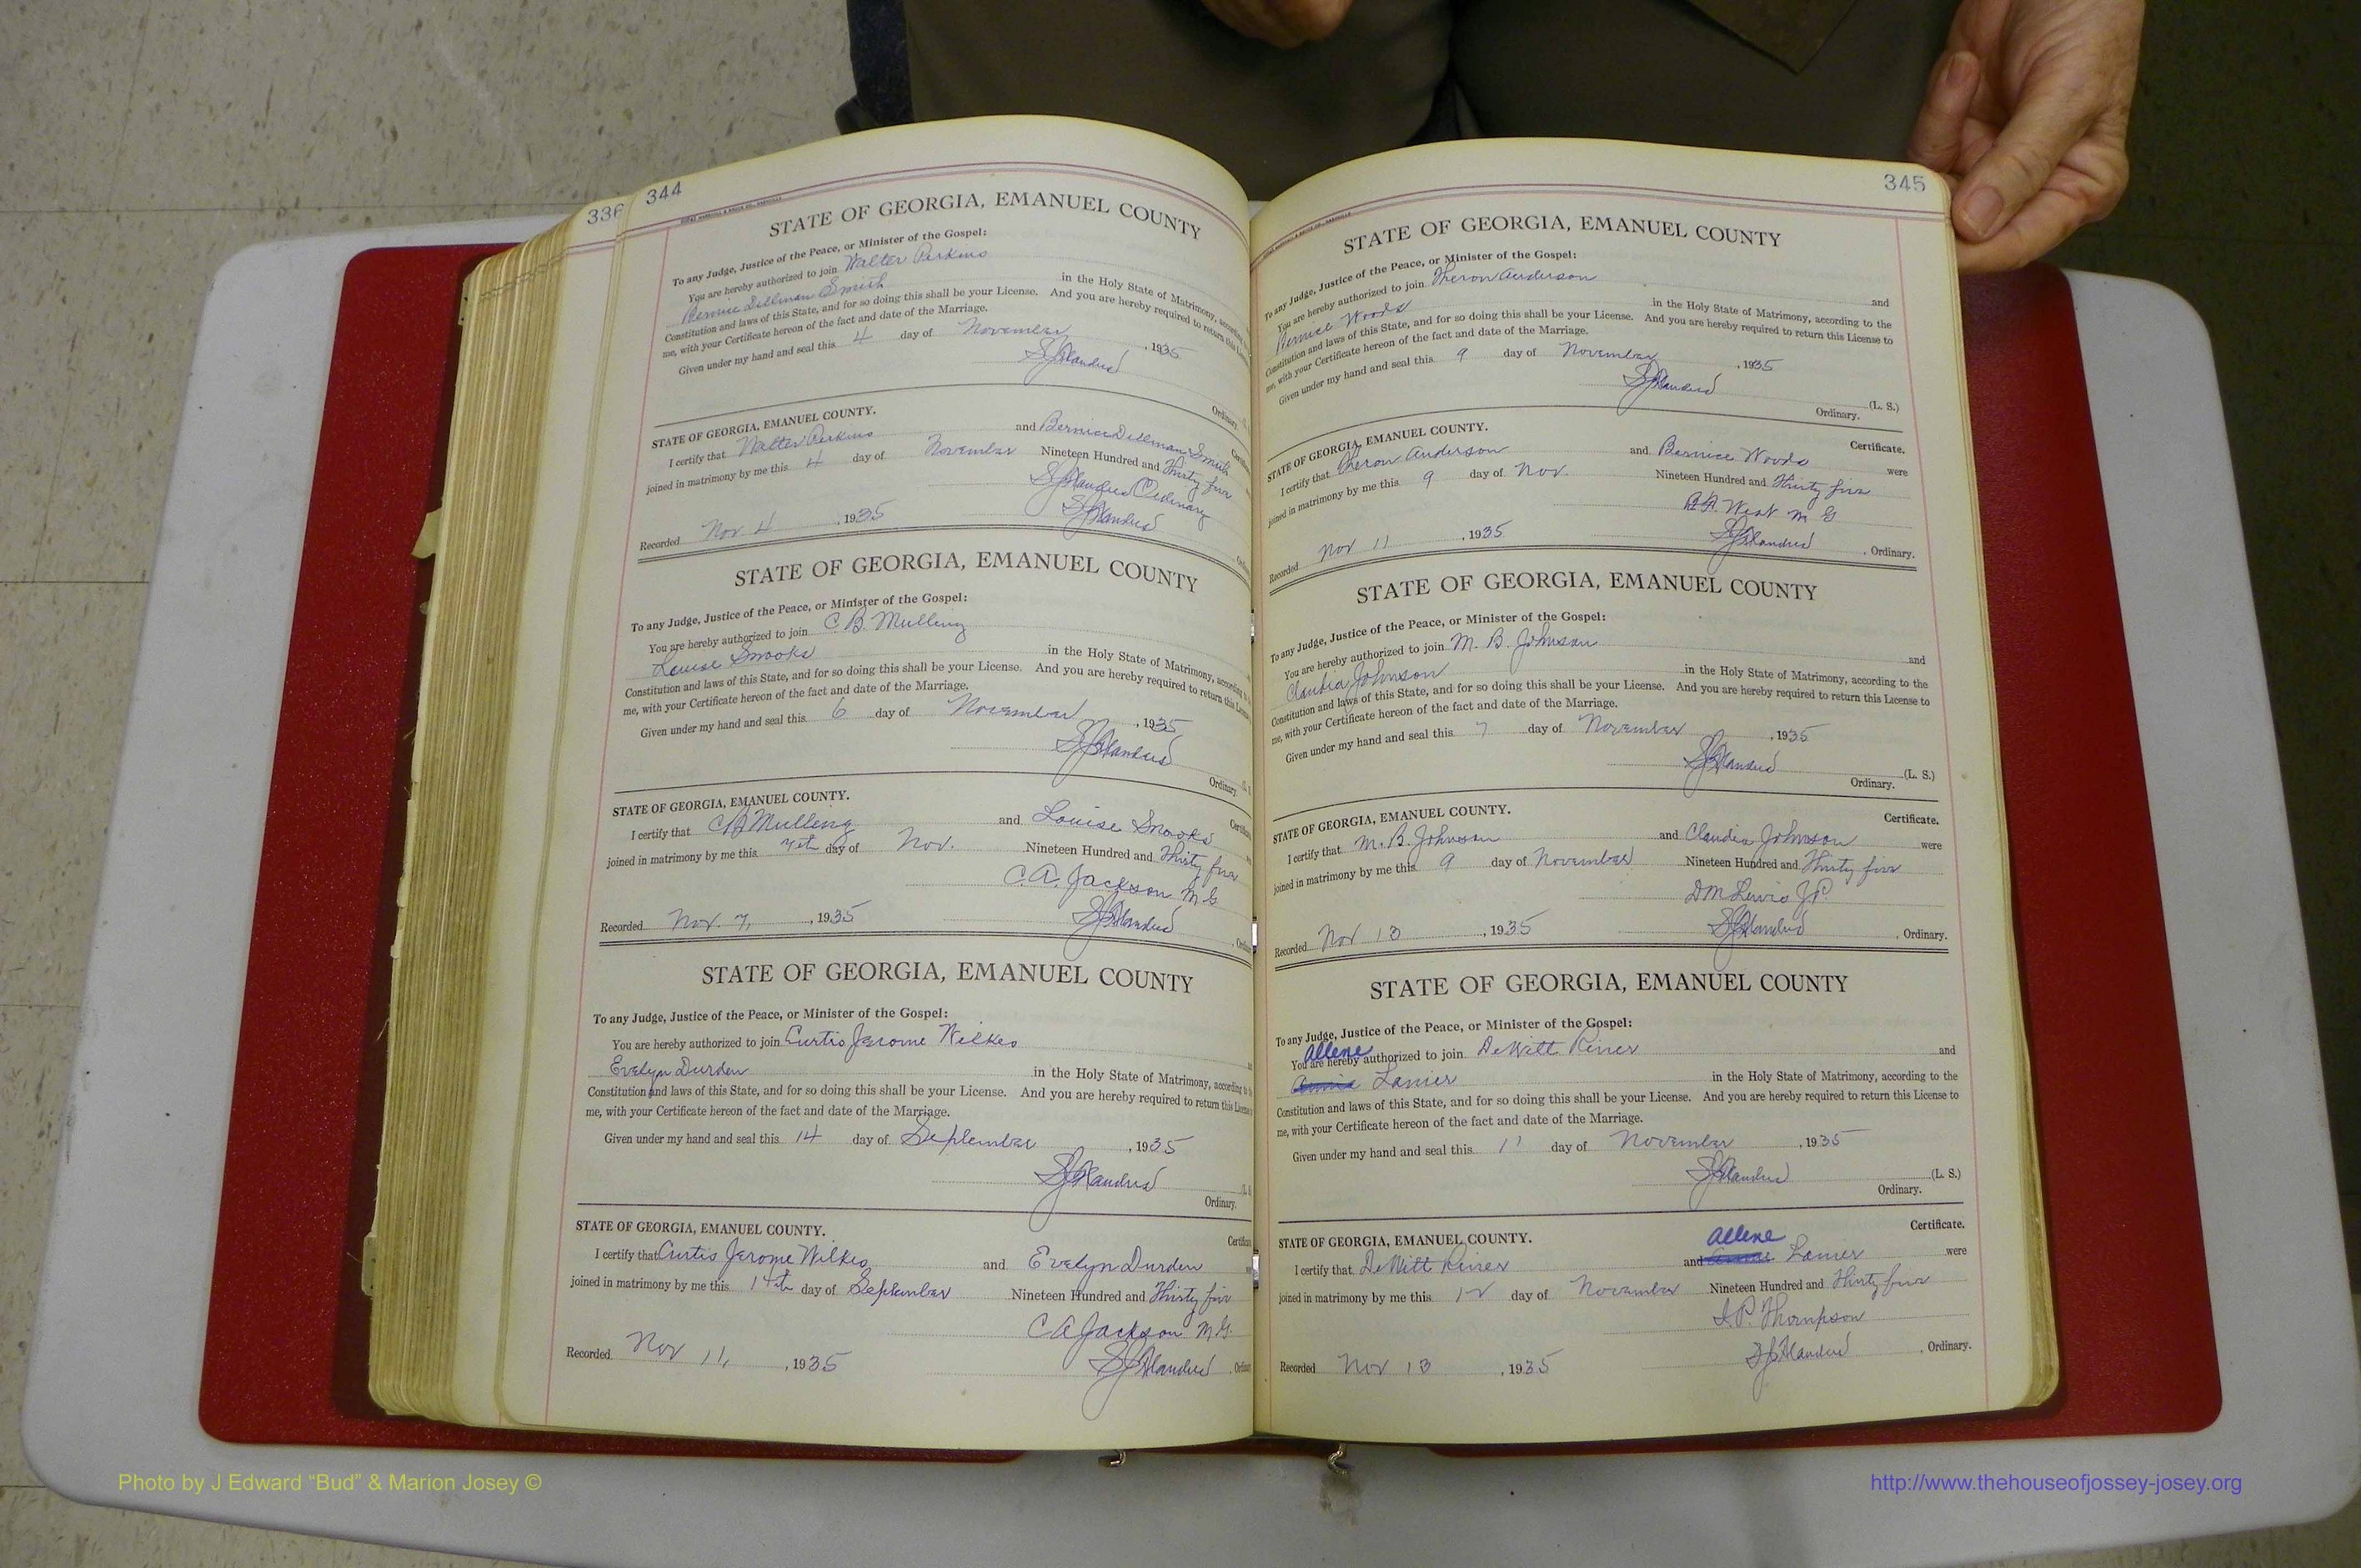 336
344
STATE OF GEORGIA, EMANUEL COUNTY
To any Judge, Justice of the Peace, or Minister of the Gospel:
You are hereby authorized to join Walter Perkins
Bernice Dellman Smith in the Holy State of Matrimony, according
Constitution and laws of this State, and for so doing this shall be your License. And you are hereby required to return this
me, with your Certificate hereon of the fact and date of the Marriage.
Given under my hand and seal this 4 day of November, 1935
Ordinary.
STATE OF GEORGIA, EMANUEL COUNTY.
I certify that Walter Perkins and Bernice Dellman Smith
joined in matrimony by me this 4 day of November Nineteen Hundred and Thirty five
Ordinary
Recorded Nov 4, 1935
STATE OF GEORGIA, EMANUEL COUNTY
To any Judge, Justice of the Peace, or Minister of the Gospel:
You are hereby authorized to join C B. Mulling
Louise Snooks in the Holy State of Matrimony, according
Constitution and laws of this State, and for so doing this shall be your License. And you are hereby required to return this
me, with your Certificate hereon of the fact and date of the Marriage.
Given under my hand and seal this 6 day of November, 1935
Ordinary.
STATE OF GEORGIA, EMANUEL COUNTY.
I certify that C B Mulling and Louise Snooks
joined in matrimony by me this 7th day of Nov. Nineteen Hundred and Thirty five
C. A. Jackson M G
Recorded Nov. 7, 1935
STATE OF GEORGIA, EMANUEL COUNTY
To any Judge, Justice of the Peace, or Minister of the Gospel:
You are hereby authorized to join Curtis Jerome Wilkes
Evelyn Durden in the Holy State of Matrimony, according to
Constitution and laws of this State, and for so doing this shall be your License. And you are hereby required to return this License
me, with your Certificate hereon of the fact and date of the Marriage.
Given under my hand and seal this 14 day of September, 1935
Ordinary.
STATE OF GEORGIA, EMANUEL COUNTY.
I certify that Curtis Jerome Wilkes and Evelyn Durden
joined in matrimony by me this 14th day of September Nineteen Hundred and Thirty five
C A Jackson M.G.
Recorded Nov 11, 1935
345
STATE OF GEORGIA, EMANUEL COUNTY
To any Judge, Justice of the Peace, or Minister of the Gospel:
You are hereby authorized to join Theron Anderson and
Bernice Woods in the Holy State of Matrimony, according to the
Constitution and laws of this State, and for so doing this shall be your License. And you are hereby required to return this License to
me, with your Certificate hereon of the fact and date of the Marriage.
Given under my hand and seal this 9 day of November, 1935
(L. S.)
Ordinary.
STATE OF GEORGIA, EMANUEL COUNTY. Certificate.
I certify that Theron Anderson and Bernice Woods were
joined in matrimony by me this 9 day of Nov. Nineteen Hundred and Thirty five
West M G
Recorded Nov 11, 1935 Ordinary.
STATE OF GEORGIA, EMANUEL COUNTY
To any Judge, Justice of the Peace, or Minister of the Gospel:
You are hereby authorized to join M. B. Johnson and
Claudia Johnson in the Holy State of Matrimony, according to the
Constitution and laws of this State, and for so doing this shall be your License. And you are hereby required to return this License to
me, with your Certificate hereon of the fact and date of the Marriage.
Given under my hand and seal this 7 day of November, 1935
(L. S.)
Ordinary.
STATE OF GEORGIA, EMANUEL COUNTY. Certificate.
I certify that M. B. Johnson and Claudia Johnson were
joined in matrimony by me this 9 day of November Nineteen Hundred and Thirty five
D M Lewis J.P.
Recorded Nov 13, 1935 Ordinary.
STATE OF GEORGIA, EMANUEL COUNTY
To any Judge, Justice of the Peace, or Minister of the Gospel:
You are hereby authorized to join DeWitt Riner and
Allene Lanier in the Holy State of Matrimony, according to the
Constitution and laws of this State, and for so doing this shall be your License. And you are hereby required to return this License to
me, with your Certificate hereon of the fact and date of the Marriage.
Given under my hand and seal this 11 day of November, 1935
(L. S.)
Ordinary.
STATE OF GEORGIA, EMANUEL COUNTY. Certificate.
I certify that DeWitt Riner and Allene Lanier were
joined in matrimony by me this 12 day of November Nineteen Hundred and Thirty five
I. P. Thompson
Recorded Nov 13, 1935 Ordinary.
Photo by J Edward “Bud” & Marion Josey ©
http://www.thehouseofjossey-josey.org